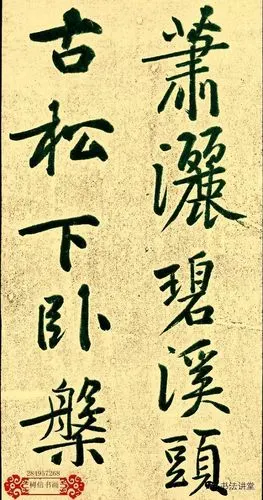 蕭灑碧溪頭
古松下卧槃
284957268
树信书画
书法讲堂